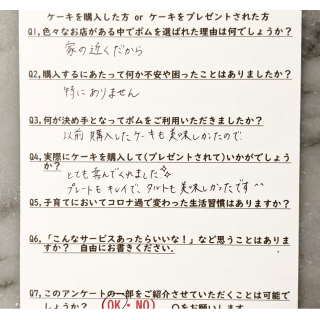 ケーキを購入した方 or ケーキをプレゼントされた方
Q1,色々なお店がある中でボムを選ばれた理由は何でしょうか?
家の近くだから
Q2,購入するにあたって何か不安や困ったことはありましたか?
特にありません
Q3,何が決め手となってボムをご利用いただきましたか?
以前購入したケーキも美味しかったので
Q4,実際にケーキを購入して(プレゼントされて)いかがでしょうか?
とても喜んでくれました✧
プレートもキレイで、タルトも美味しかったです^^
Q5,子育てにおいてコロナ過で変わった生活習慣はありますか?
Q6,「こんなサービスあったらいいな!」など思うことはありますか? 自由にお書きください.
Q7,このアンケートの一部をご紹介させていただくことは可能でしょうか? (OK・NO) 〇をお願いします